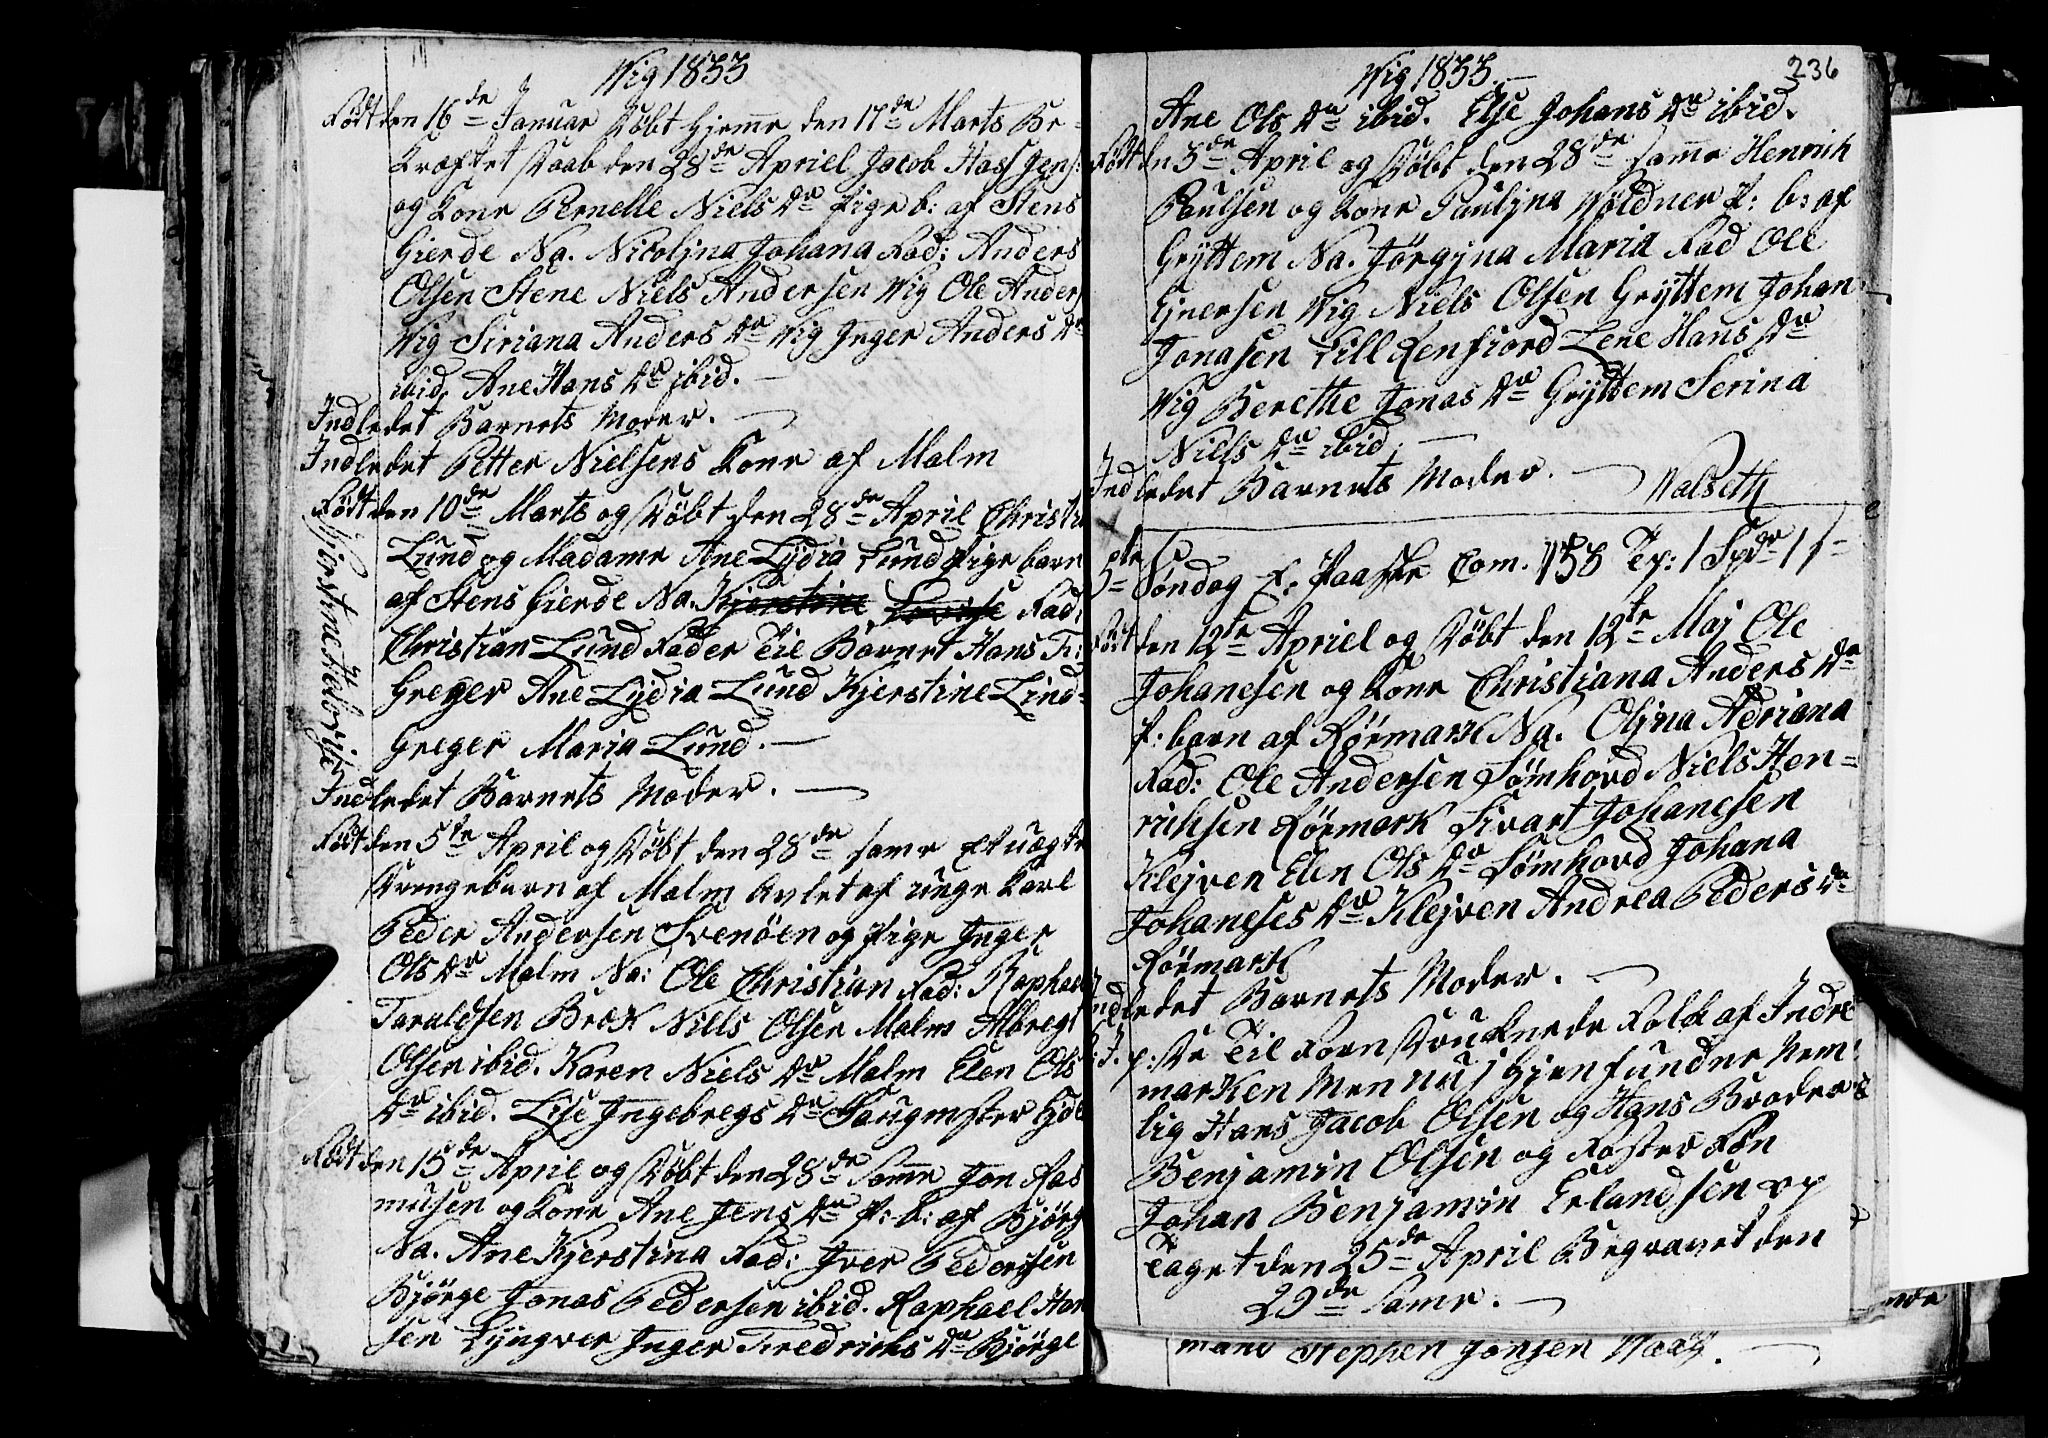 Wig 1833
Født den 16de Januar Døbt Hjeme den 17de Marts Be-
kræftet Daab den 28de Apriel Jacob Has Jens:
og Kone Pernelle Niels dr Pige b: af Stens
Gierde Na. Nicoljna Johana Fad: Anders
Olsen Stene Niels Andersen Wig Ole Anders
Wig Siriana Anders dr Wig Inger Anders dr
ibid Ane Hans dr ibid.
Indledet Barnets Moder.
Indledet Petter Nielsens Kone af Malm
Født den 10de Marts og Døbt den 28de April Christi
Lund og Madame Ane Lydia Lund Pige barn
af Stens Gierde Na. Kjerstine Lovise Fad:
Kjerstine Helovise
Christian Lund Fader Til Barnet Hans
Greger Ane Lydia Lund Kjerstine Lind-
Greger Maria Lund.
Indledet Barnets Moder.
Født den 5te April og Døbt den 28de same Et uægte
Drengebarn af Malm Avlet af unge Karl
Peder Andersen Svenöen og Pige Inger
Ols dr Malm Na: Ole Christian Fad: Raphael
Taraldsen Bræk Niels Olsen Malm Albregt
Olsen ibid. Karen Niels dr Malm Elen Ols
dr ibid. Lise Ingebregs dr Saugmester
Født den 15de April og Døbt den 28de Same Jon Ras
musen og Kone Ane Jens dr P: b: af Bjørg
Na. Ane Kjerstina Fad: Iver Pedersen
Bjørge Jonas Pedersen ibid. Raphael Han
sen Lyngver Inger Fredrichs dr Bjørge
Wig 1833. 236
Ane Ols dr ibid. Else Johans dr ibid.
Født den 3de April og Døbt den 28de Same Henrich
Paulsen og Kone Pauljna Woldner P: b: af
Gryttem Na. Jørgjna Maria Fad Ole
Ejnersen Wig Niels Olsen Gryttem Johan
Jonasen Lill Renfiord Lene Hans dr
Wig Berethe Jonas dr Gryttem Serina
Niels dr ibid.
Indledet Barnets Moder. Walseth
5te Søndag f. Paaske Com. 153 Tp: 1 Spdr 1
Født den 12te Apriel og Døbt den 12te Maj Ole
Johanesen og Kone Christiana Anders dr
P: barn af Rørmark Na. Oljna Adriana
Fad: Ole Andersen Sømhovd Niels Hen-
richsen Rørmark Sivart Johanesen
Klejven Elen Ols dr Sømhovd Johana
Johaneses dr Klejven Andrea Peders dr
Rørmark
Indledet Barnets Moder.
J. p: De Til Forn Druknede Folck af Indre
marken Men nu jgjen fundne Nem
lig Hans Jacob Olsen og Hans Broder
Benjamin Olsen og Foster Søn
Johan Benjamin Erlandsen op
Taget den 25de April Begravet den
29de Same.
mand Stephen Jonsen